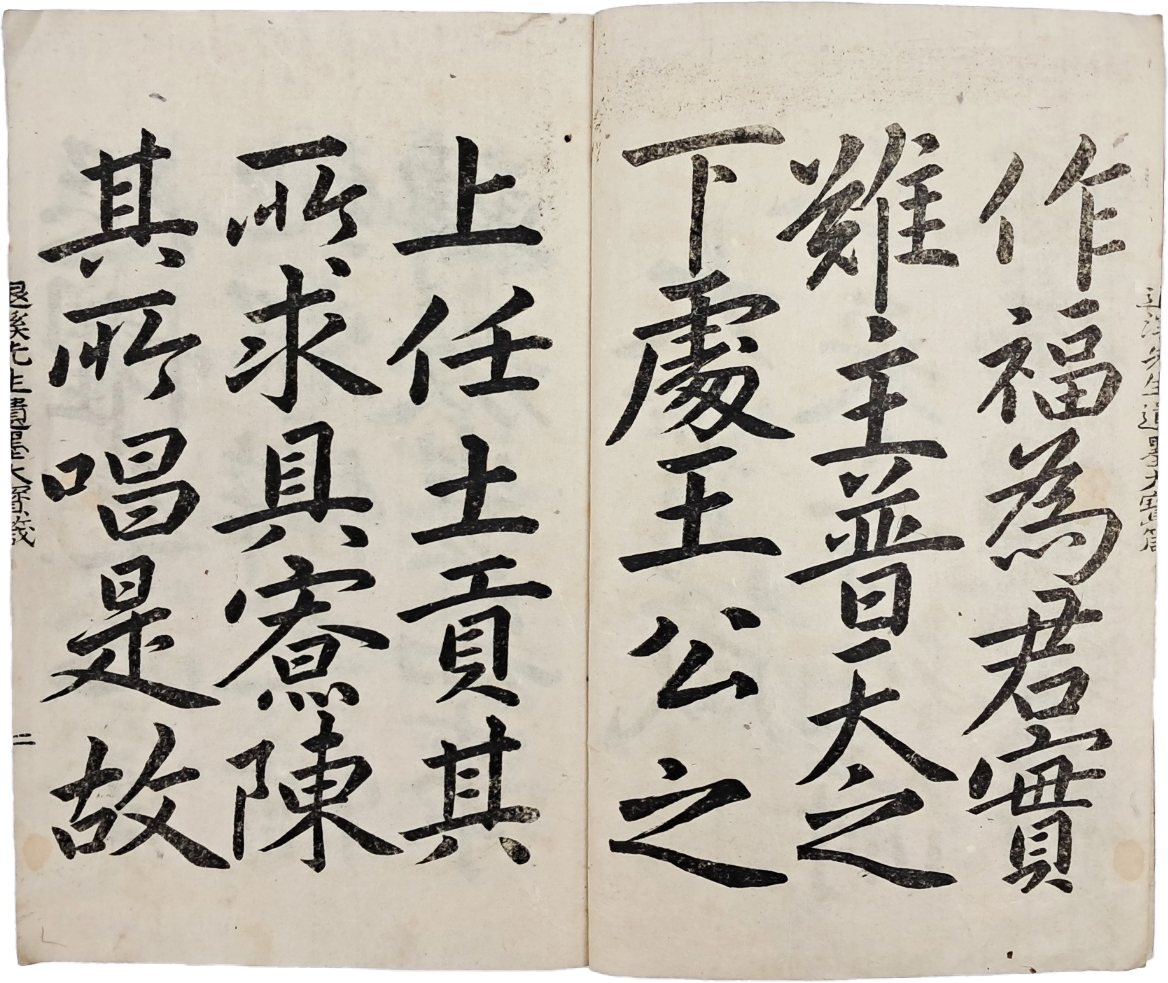 退溪先生遺墨大寶箴
作福為君實
難主普天之
下處王公之
上任土貢其
所求具寮陳
其所唱是故
退溪先生遺墨大寶箴 二